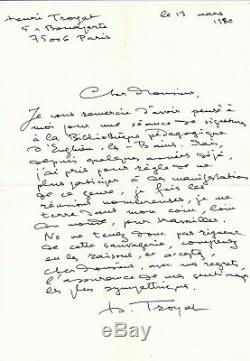 Henri Troyat
5 r Bonaparte
75006 Paris
le 13 mars
1980
Cher Monsieur,
Je vous remercie d'avoir pensé à
moi pour une séance de signatures
à la Bibliothèque pédagogique
d'Enghien-les-Bains. Mais,
depuis quelques années déjà,
j'ai pris pour règle de ne
plus participer à des manifestations
de ce genre, je fuis les
réunions nombreuses, je me
terre dans mon coin loin
du monde, pour travailler.
Ne me tenez donc pas rigueur
de cette sauvagerie, comprenez
en la raison, et acceptez,
cher Monsieur, avec mes regrets,
l'assurance de mes sentiments
les plus sympathiques.
H. Troyat